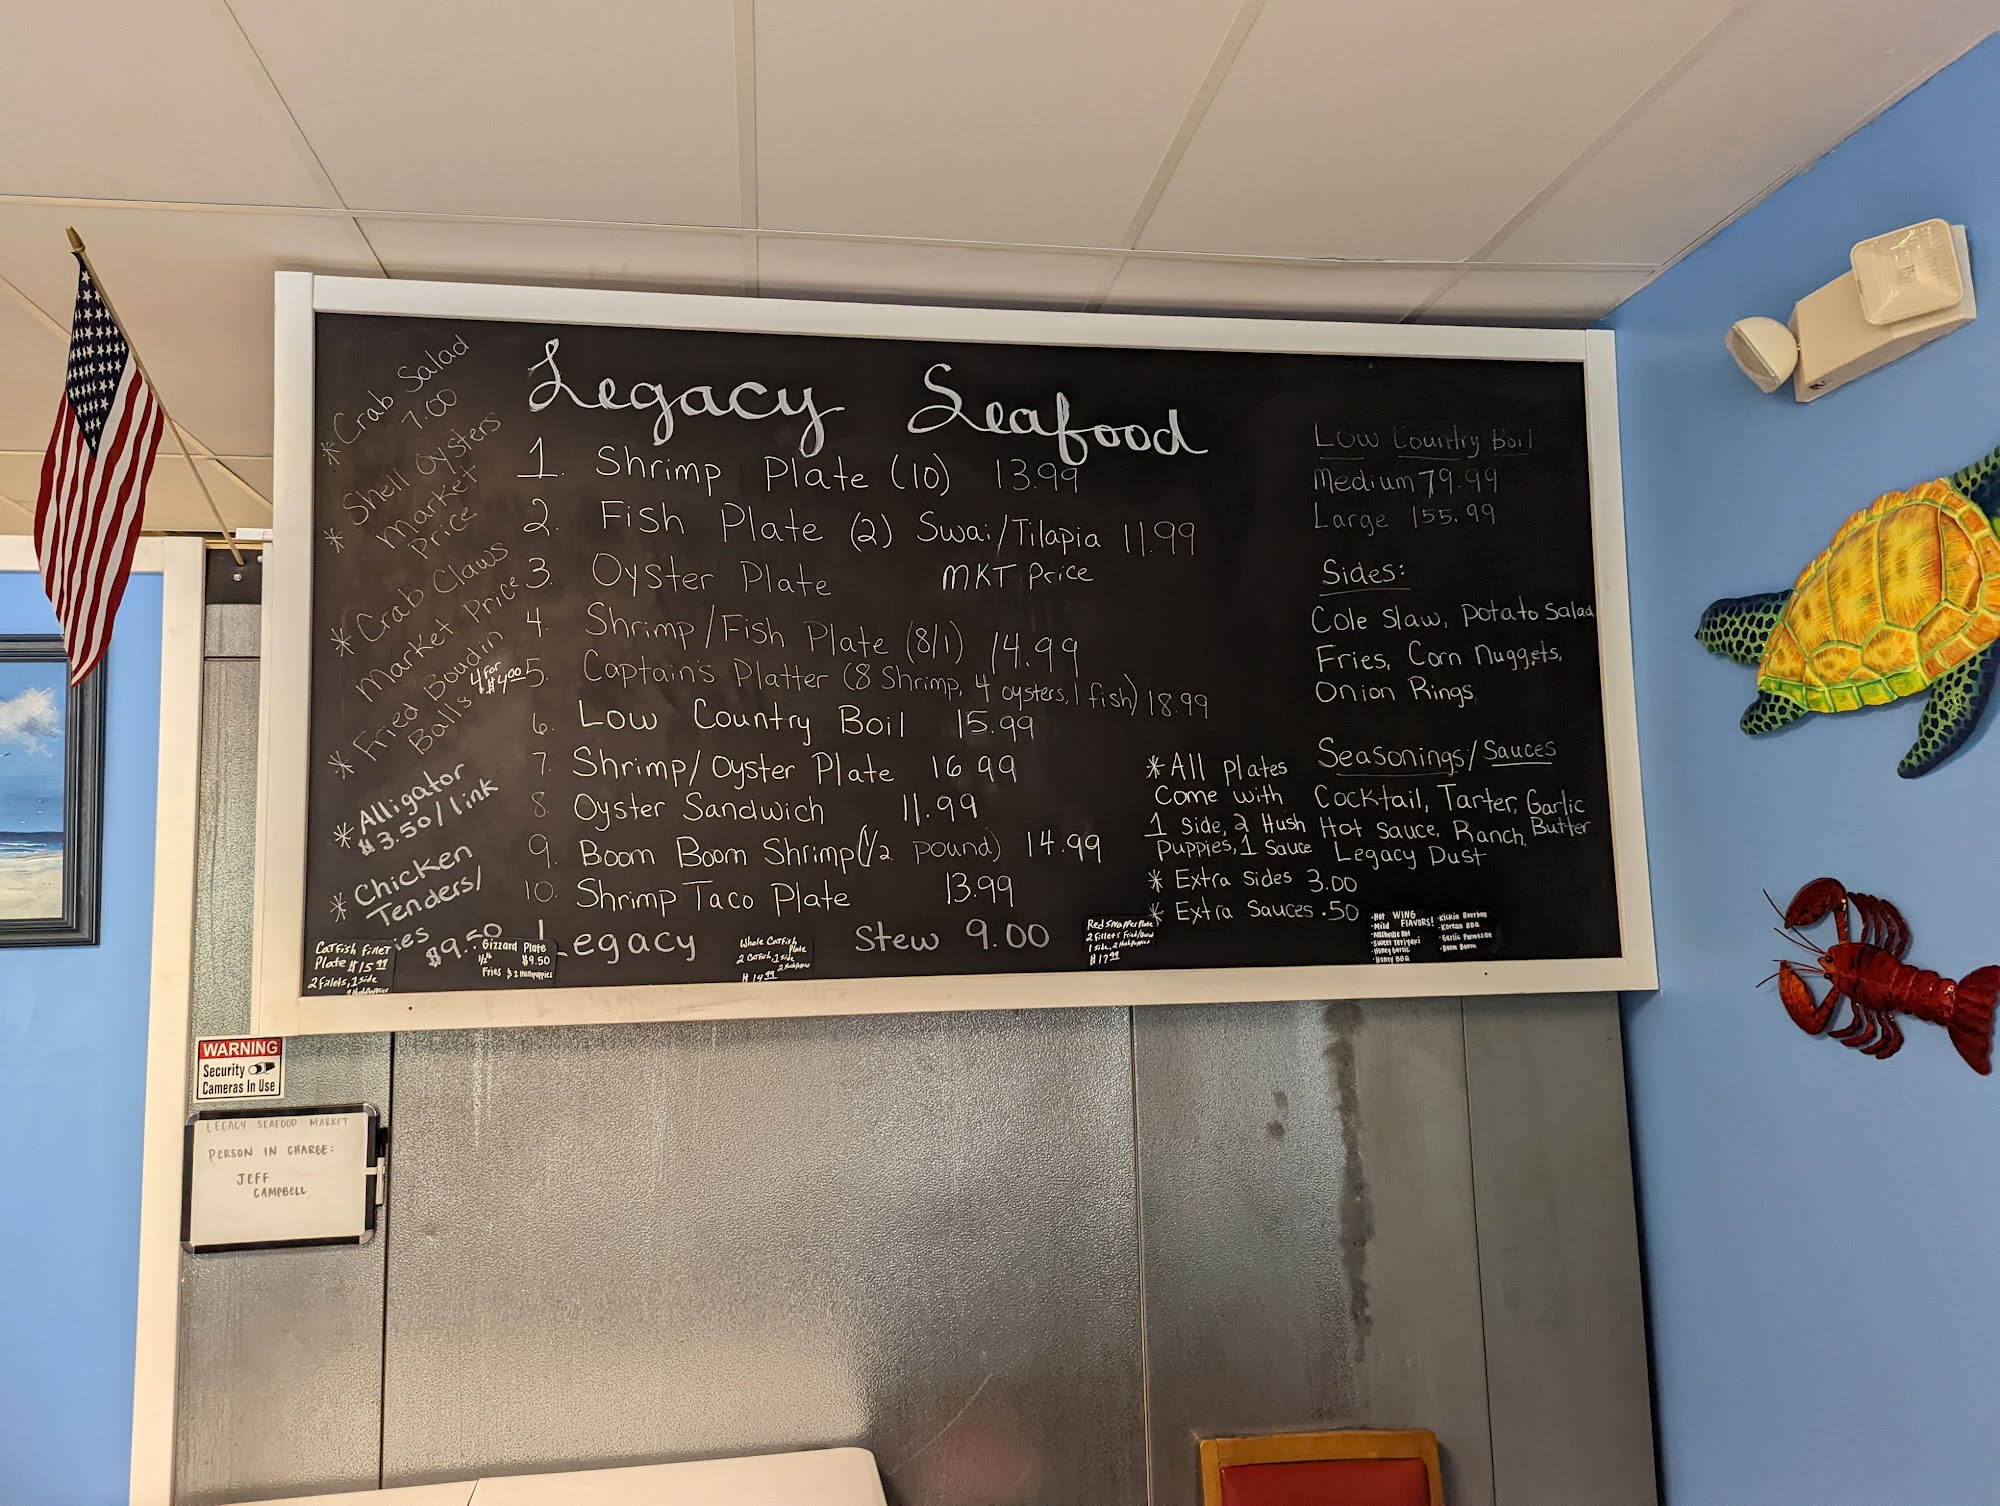 Legacy Seafood
* Crab Salad
7.00
* Shell Oysters
Market
Price
* Crab Claws
Market Price
* Fried Boudin
Balls 4 for
$4.00
* Alligator
$3.50/link
* Chicken
Tenders/
ies $9.50
1. Shrimp Plate (10) 13.99
2. Fish Plate (2) Swai/Tilapia 11.99
3. Oyster Plate MKT Price
4. Shrimp/Fish Plate (8/1) 14.99
5. Captain's Platter (8 Shrimp, 4 oysters, 1 fish) 18.99
6. Low Country Boil 15.99
7. Shrimp/Oyster Plate 16.99
8. Oyster Sandwich 11.99
9. Boom Boom Shrimp (1/2 pound) 14.99
10. Shrimp Taco Plate 13.99
Legacy Stew 9.00
Low Country Boil
Medium 79.99
Large 155.99
Sides:
Cole Slaw, Potato Salad
Fries, Corn Nuggets,
Onion Rings
Seasonings/Sauces
Cocktail, Tarter, Garlic
Butter
Hot Sauce, Ranch,
Legacy Dust
* All plates
Come with
1 Side, 2 Hush
Puppies, 1 Sauce
* Extra Sides 3.00
* Extra Sauces .50
Catfish Filet
Plate $15.99
2 Fillets, 1 side
2 Hushpuppies
Gizzard Plate
1/2 lb $9.50
Fries & 2 Hushpuppies
Whole Catfish
Plate
2 Catfish, 1 side
2 Hushpuppies
$14.99
Red Snapper Plate
2 Fillets Fried/
1 side, 2 Hushpuppies
$17.99
WING
FLAVORS!
·Hot
·Mild
·Nashville Hot
·Sweet Teriyaki
·Honey Garlic
·Honey BBQ
·Kickin Bourbon
·Korean BBQ
·Garlic Parmesan
·Boom Boom
WARNING
Security
Cameras In Use
LEGACY SEAFOOD MARKET
PERSON IN CHARGE:
JEFF
CAMPBELL